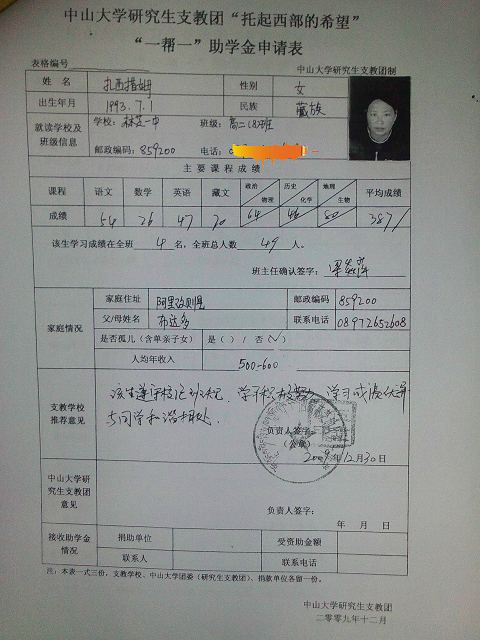 中山大学研究生支教团“托起西部的希望”
“一帮一”助学金申请表
表格编号 中山大学研究生支教团制
姓 名 扎西措姆 性别 女
出生年月 1993.7.1 民族 藏族
就读学校及班级信息 学校: 林芝一中 班级: 高二(8)班
邮政编码: 859200 电话:
主要课程成绩
课程 语文 数学 英语 藏文 政治 物理 历史 化学 地理 生物 平均成绩
成绩 54 26 47 70 64 46 80 387/
该生学习成绩在全班 4 名, 全班总人数 49 人。
班主任确认签字:
家庭情况 家庭住址 阿里改则县 邮政编码 859200
父/母姓名 布达多 联系电话 08972652608
是否孤儿(含单亲子女) 是( ) 否(√)
人均年收入 500-600
支教学校推荐意见 该生遵守校纪班纪, 学习积极努力, 学习成绩优异
与同学和谐相处.
负责人签字:
(公章)
2009年12月30日
中山大学研究生支教团意见
负责人签字:
年 月 日
接收助学金情况 捐助单位 受资助金额
联系人 联系电话
注: 本表一式三份, 支教学校、中山大学团委(研究生支教团)、捐款单位各留一份。
中山大学研究生支教团
二零零九年十二月